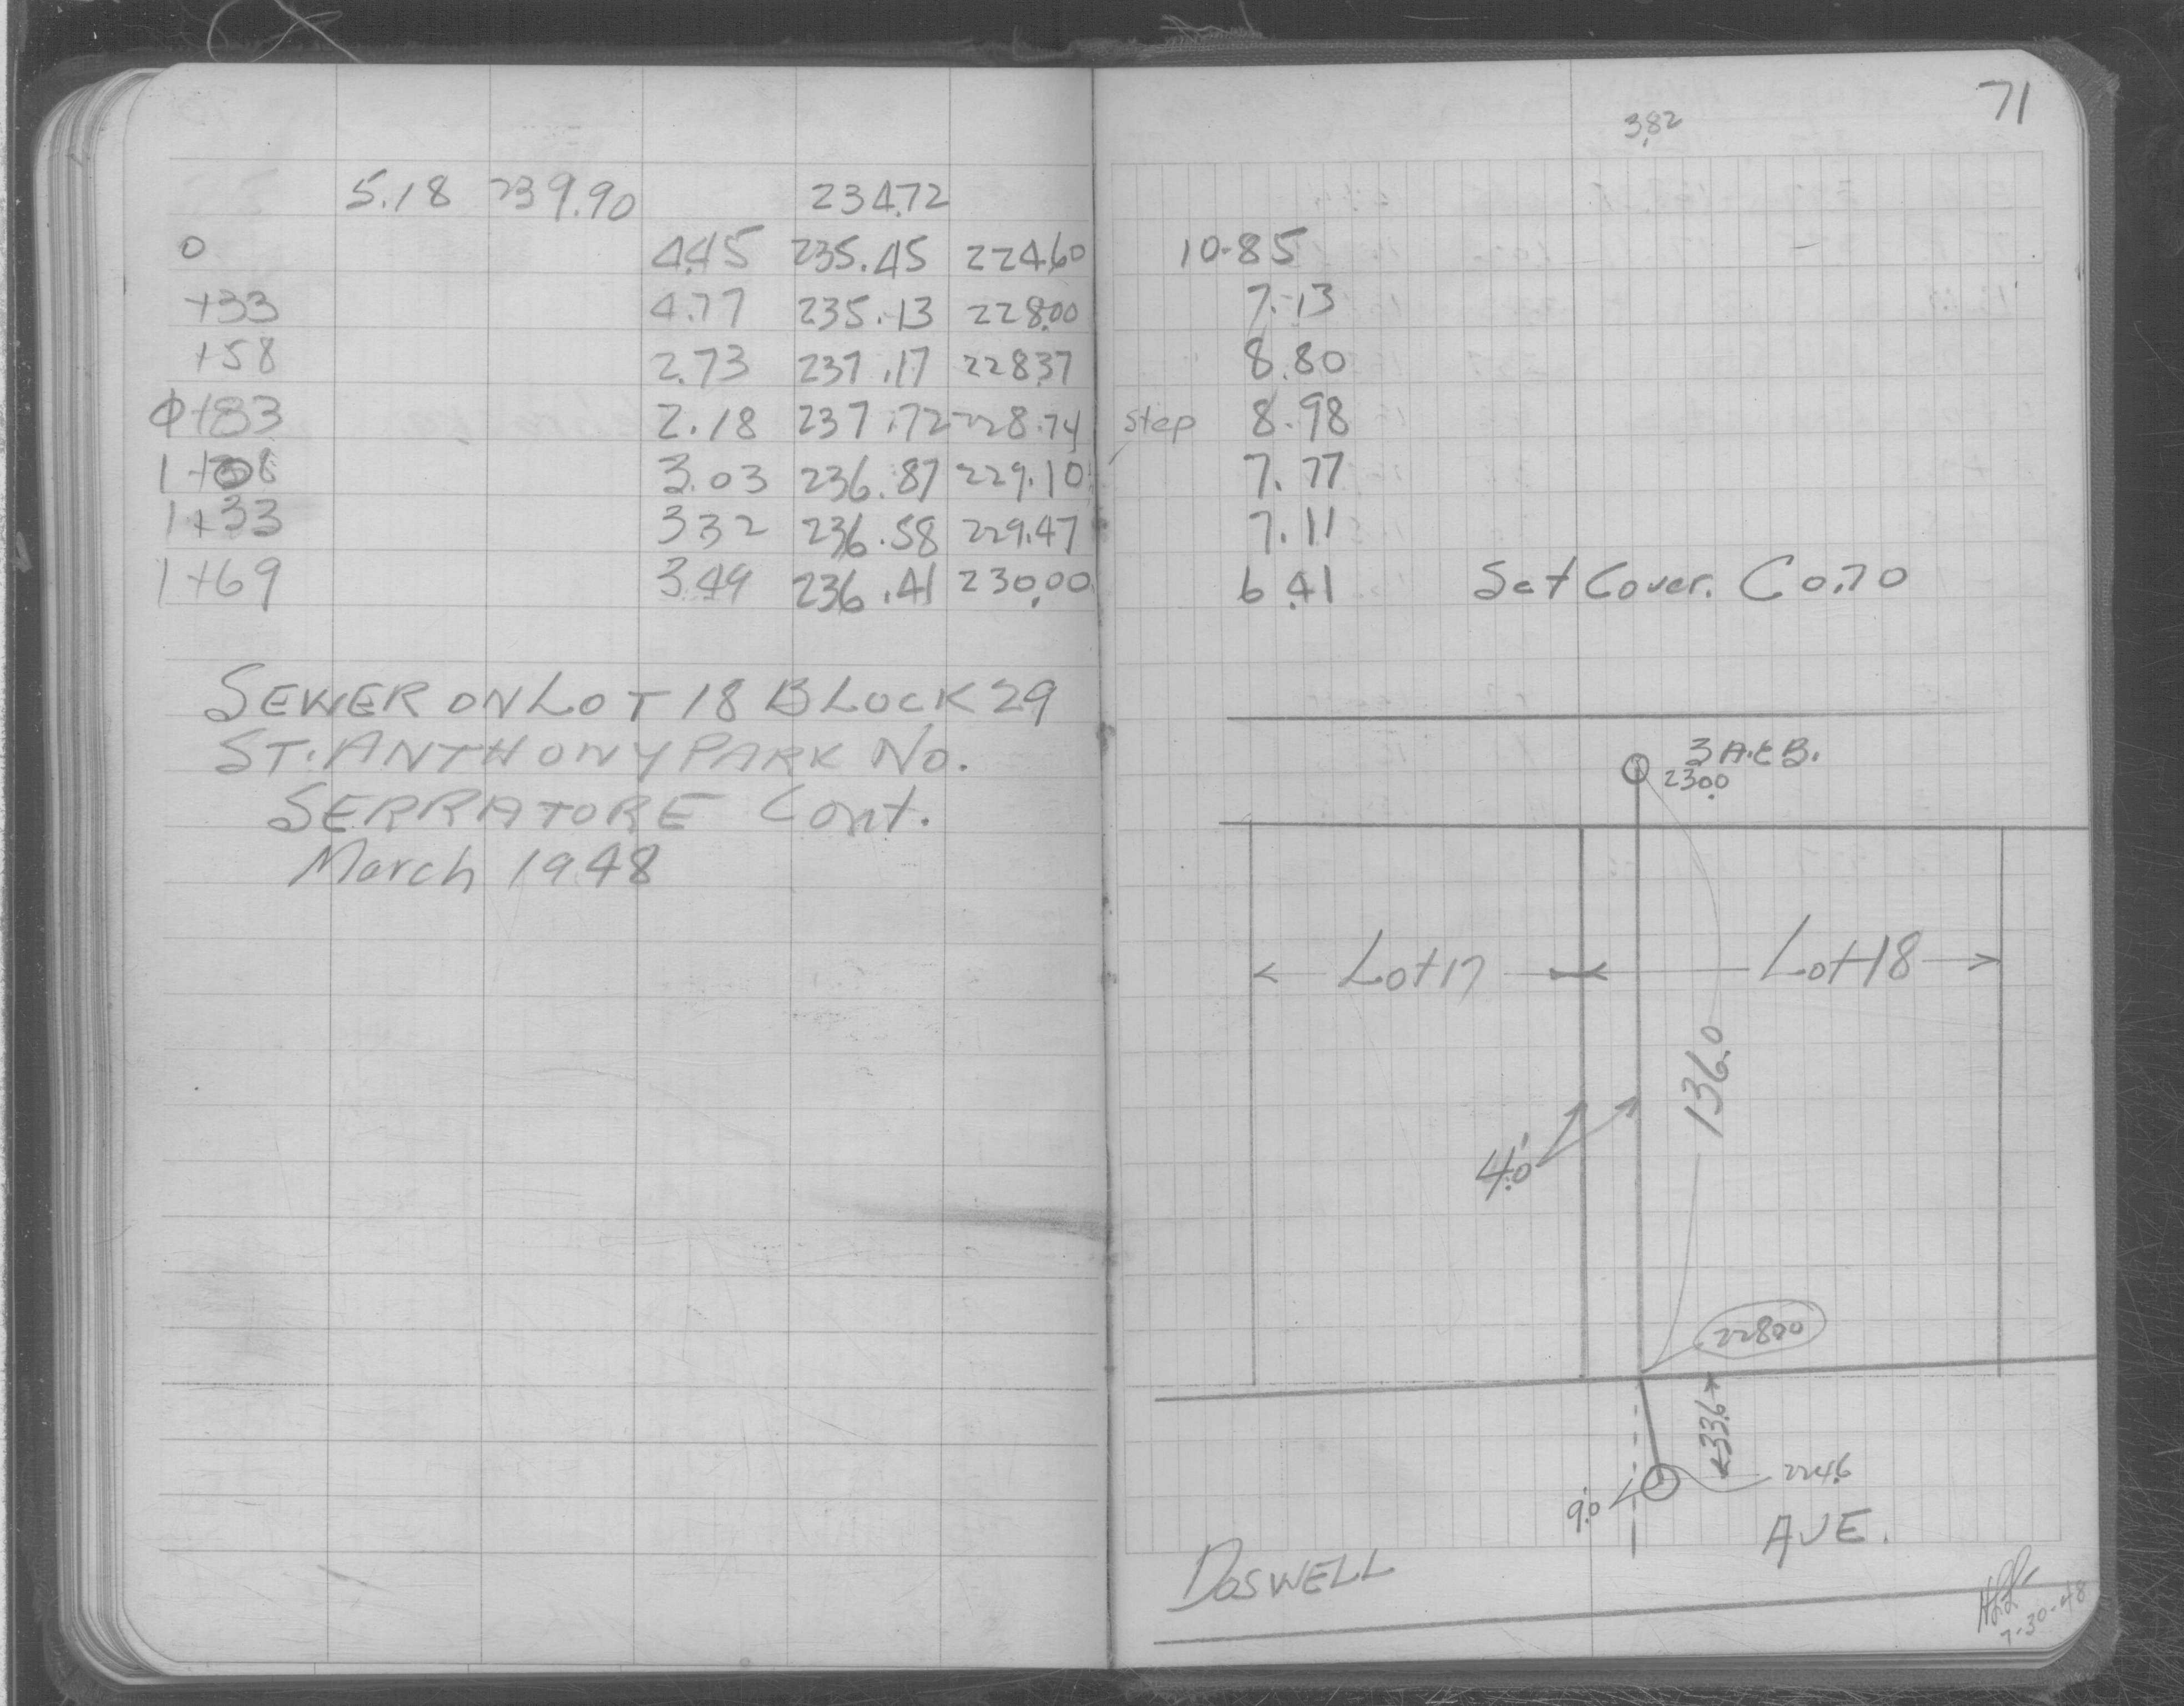 71
3.82
5.18 239.90 234.72
0 4.45 235.45 224.60 10.85
+33 4.77 235.13 228.00 7.13
+58 2.73 237.17 228.37 8.80
0+83 2.18 237.72 228.74 step 8.98
1+08 3.03 236.87 229.10 7.77
1+33 3.32 236.58 229.47 7.11
1+69 3.49 236.41 230.00 6.41 Set Cover. C 0.70
SEWER ON LOT 18 BLOCK 29
ST. ANTHONY PARK No.
SERRATORE Cont.
March 1948
230.0
Lot 17
Lot 18
136.0
4.0'
228.00
33.6
224.6
9.0
DOSWELL AVE.
7-30-48